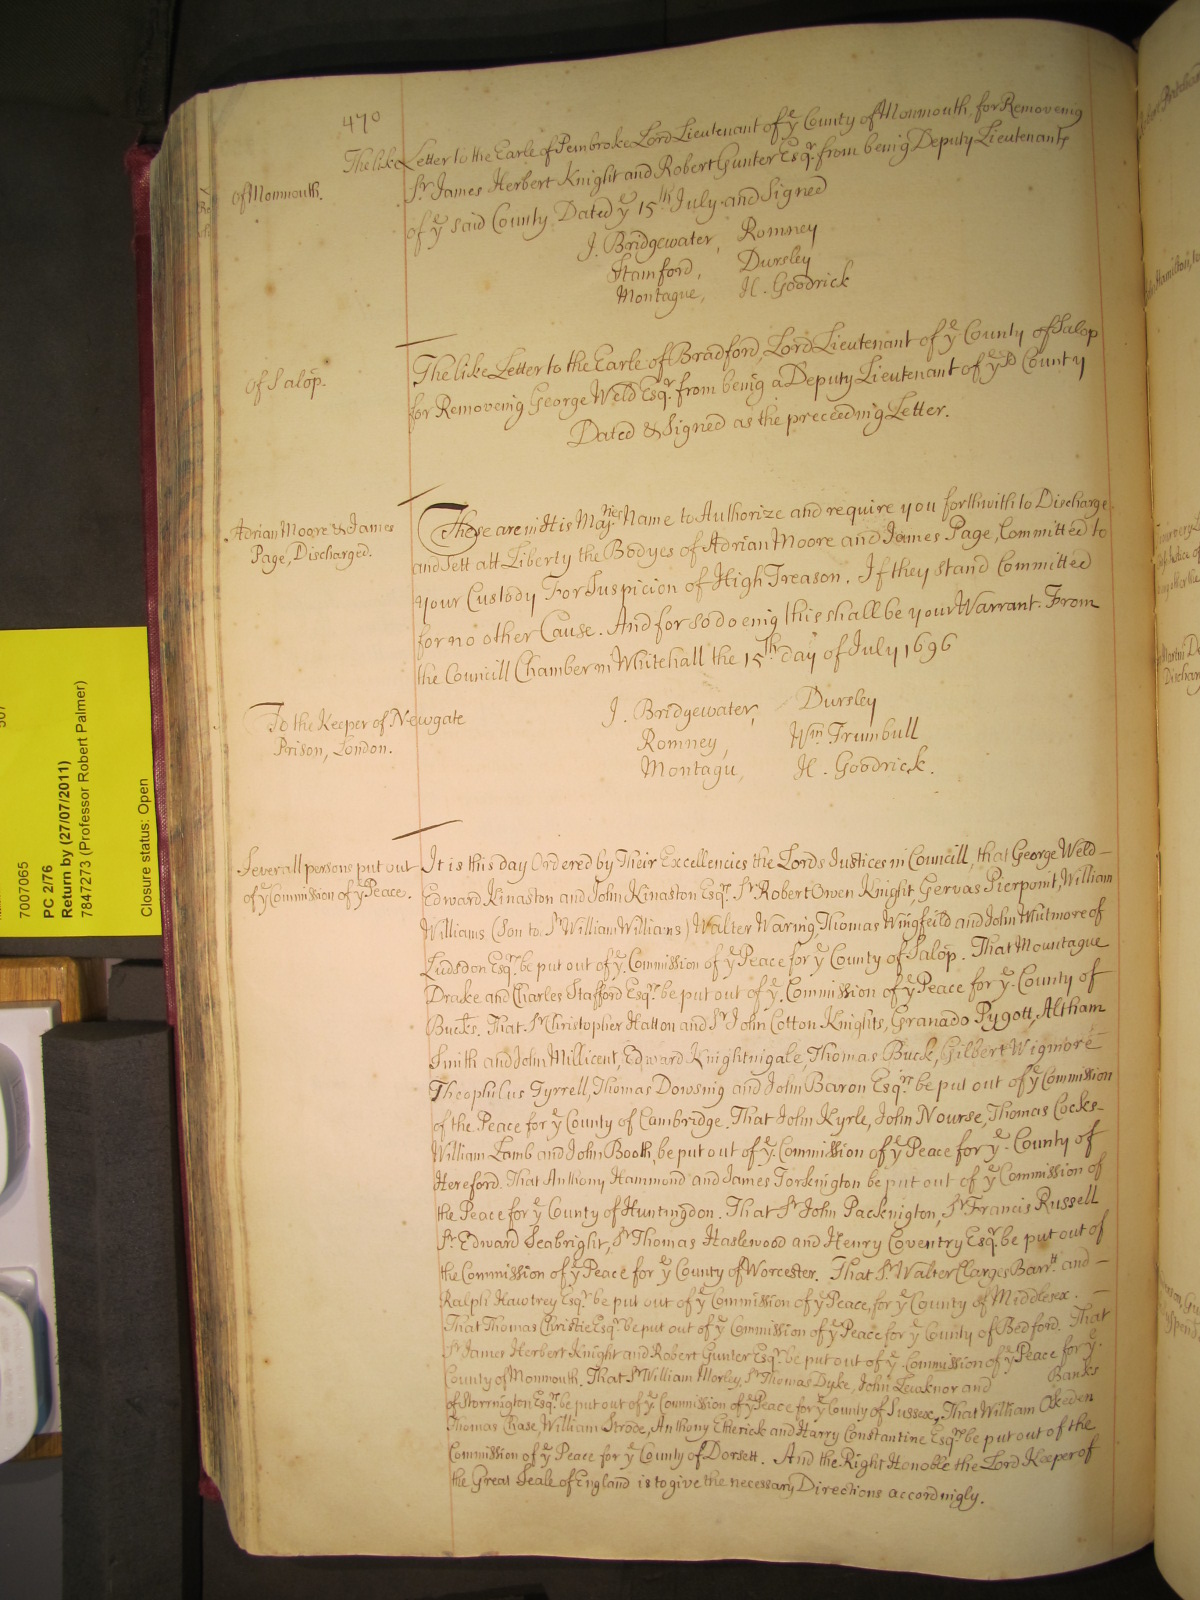 470
The like Letter to the Earle of Pembroke Lord Lieutenant of yᵉ County of Monmouth, for Removeing
of Monmouth.
Sʳ James Herbert Knight and Robert Gunter Esqʳ. from being Deputy Lieutenants
of yᵉ said County. Dated yᵉ 15ᵗʰ July and Signed
J. Bridgewater, Romney
Stamford, Dursley
Montague, H. Goodrick
of Salop.
The like Letter to the Earle of Bradford, Lord Lieutenant of yᵉ County of Salop
for Removeing George Weld Esqʳ. from being a Deputy Lieutenant of yᵉ sᵈ County
Dated & Signed as the preceeding Letter.
Adrian Moore & James
Page, Discharged.
These are in His Majᵗⁱᵉˢ Name to Authorize and require you forthwith to Discharge
and Sett att Liberty the Bodyes of Adrian Moore and James Page, Committed to
your Custody For Suspicion of High Treason. If they stand Committed
for no other Cause. And for so doeing this shall be your Warrant. From
the Councill Chamber in Whitehall the 15ᵗʰ day of July 1696
To the Keeper of Newgate
Prison, London.
J. Bridgewater, Dursley
Romney, Wᵐ Trumbull
Montagu, H. Goodrick.
Severall persons put out
of yᵉ Commission of yᵉ Peace.
It is this day Ordered by Their Excellencies the Lords Justices in Councill, that George Weld
Edward Kinaston and John Kinaston Esqʳˢ. Sʳ Robert Owen Knight, Gervas Pierpoint, William
Williams (Son to Sʳ William Williams) Walter Waring, Thomas Wingfeild and John Whitmore of
Ludsdon Esqʳˢ. be put out of yᵉ. Commission of yᵉ Peace for yᵉ County of Salop. That Mountague
Drake and Charles Stafford Esqʳˢ. be put out of yᵉ. Commission of yᵉ Peace for yᵉ. County of
Bucks. That Sʳ Christopher Hatton and Sʳ John Cotton Knights, Granado Pygott, Altham
Smith and John Millicent, Edward Knightnigale, Thomas Buck, Gilbert Wigmore
Theophulus Tyrrell, Thomas Dowsing and John Baron Esqʳˢ. be put out of yᵉ Commission
of the Peace for yᵉ County of Cambridge. That John Kyrle, John Nourse, Thomas Cocks
William Lamb and John Booth, be put out of yᵉ. Commission of yᵉ Peace for yᵉ. County of
Hereford. That Anthony Hammond and James Torkington be put out of yᵉ Commission of
the Peace for yᵉ County of Huntingdon. That Sʳ John Packnigton, Sʳ Francis Russell
Sʳ. Edward Seabright, Sʳ Thomas Haslewood and Henry Coventry Esqʳˢ. be put out of
the Commission of yᵉ Peace for yᵉ County of Worcester. That Sʳ. Walter Clarges Barrᵗᵗ and
Ralph Hawtrey Esqʳˢ be put out of yᵉ Commission of yᵉ Peace, for yᵉ County of Middlesex.
That Thomas Christie Esqʳ be put out of yᵉ Commission of yᵉ Peace for yᵉ County of Bedford. That
Sʳ James Herbert Knight and Robert Gunter Esqʳˢ be put out of yᵉ. Commission of yᵉ Peace for yᵉ.
County of Monmouth. That Sʳ William Morley, Sʳ Thomas Dyke, John Lewknor and Banks
of Storrington Esqʳˢ. be put out of yᵉ. Commission of yᵉ Peace for yᵉ County of Sussex. That William Okeden
Thomas Chase, William Strode, Anthony Etterick and Harry Constantine Esqʳˢ be put out of the
Commission of yᵉ Peace for yᵉ County of Dorsett. And the Right Honoble the Lord Keeper of
the Great Seale of England is to give the necessary Directions accordingly.
7007065
PC 2/76
Return by (27/07/2011)
7847273 (Professor Robert Palmer)
Closure status: Open